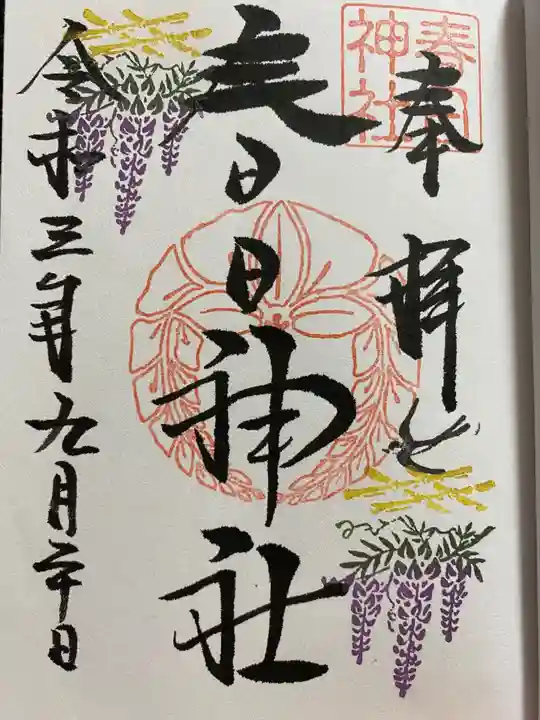 奉拝
春日
神社
春日日神社
令和三年九月二十日